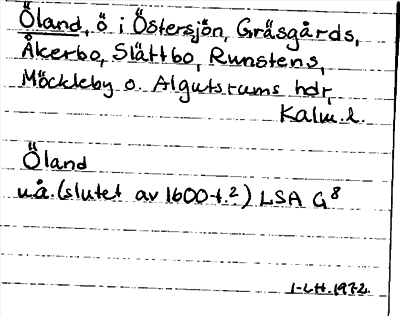 Öland, ö i Östersjön, Gräsgårds,
Åkerbo, Slättbo, Runstens,
Möckleby o. Algutsrums hdr,
Kalm. l.
Öland
u.å. (slutet av 1600-t.²) LSA G⁸
I-LH. 1972